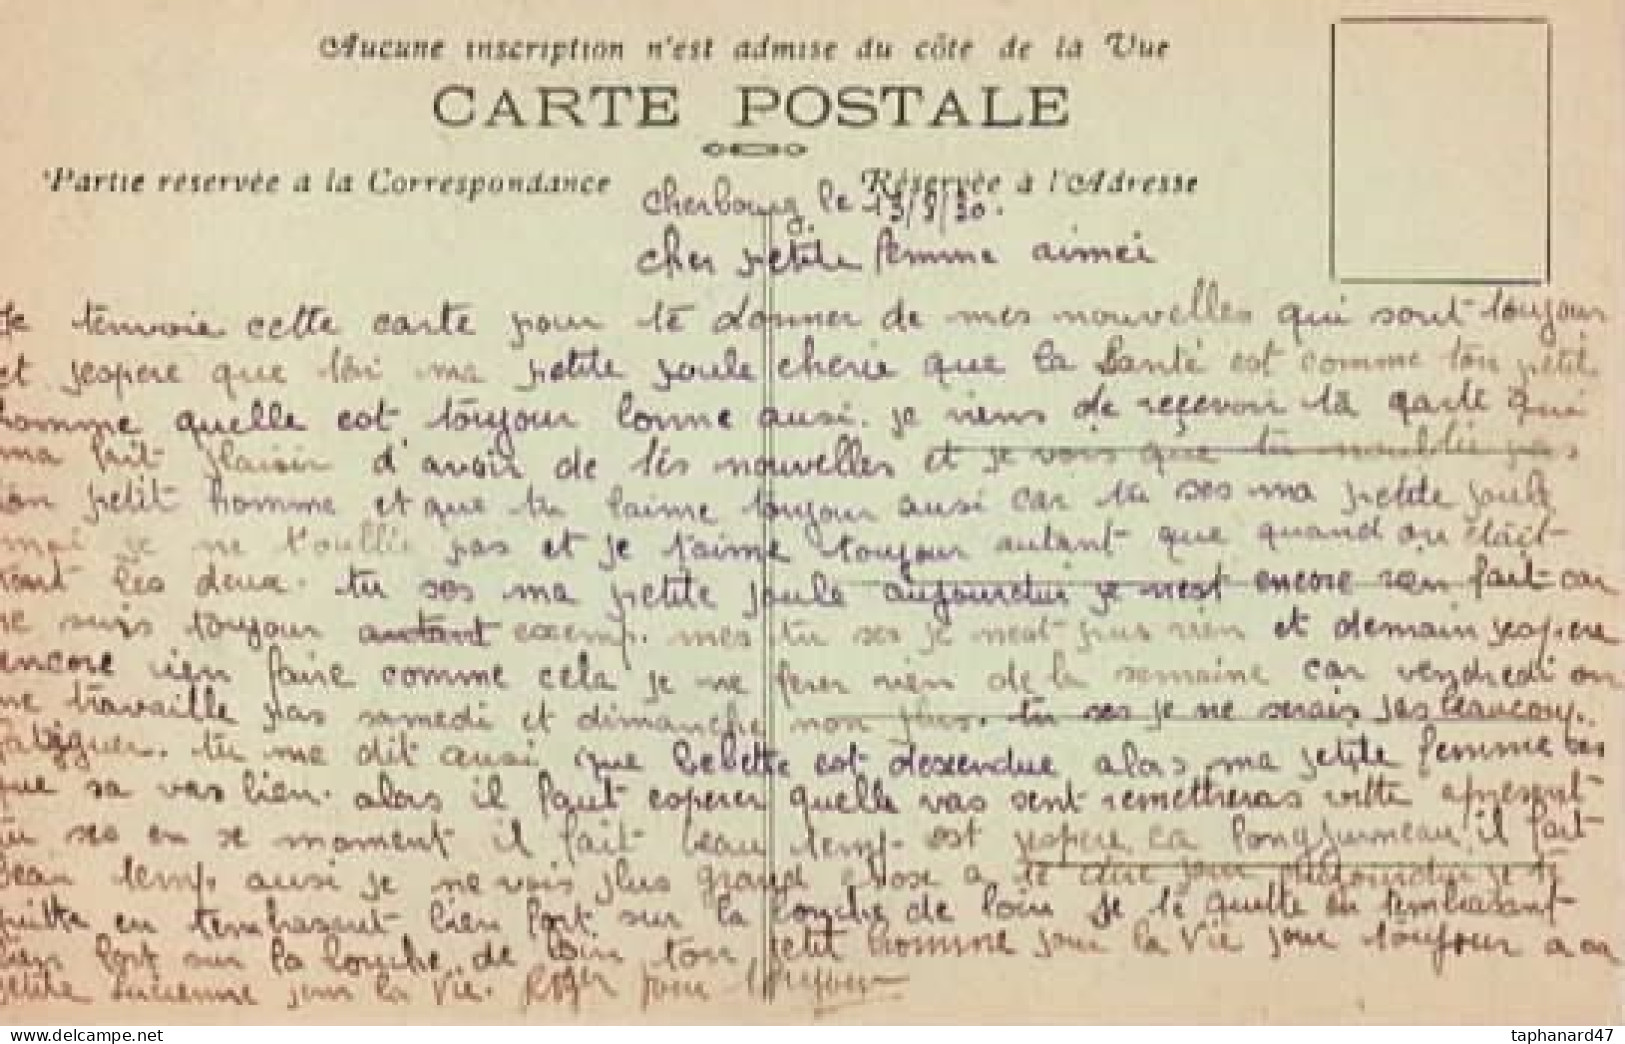 Aucune inscription n'est admise du côté de la Vue
CARTE POSTALE
Partie réservée à la Correspondance
Réservée à l'Adresse
Cherbourg, le 13/9/30.
cher petite femme aimei
Je t'envoie cette carte pour te donner de mes nouvelles qui sont toujour
et j'espere que toi ma petite poule cherie que la santé est comme ton petit
homme quelle est toujour bonne ausi. je viens de reçevoir ta carte qui
ma fait plaisir d'avoir de tes nouvelles et je vois que tu m'oublie pas
ton petit homme et que tu l'aime toujour ausi car tu ses ma petite poule
moi je ne t'oublie pas et je t'aime toujour autant que quand on était
tout les deux. tu ses ma petite poule aujourdui je n'est encore rien fait car
je suis toujour autant exemp. mes tu ses je n'est plus rien et demain j'espere
encore rien faire comme cela je ne ferer rien de la semaine car vendredi on
ne travaille pas samedi et dimanche non plus. tu ses je ne serais pas beaucoup
fatiguer. tu me dit ausi que bebette est descendue alors ma petite femme ses
que sa vas bien. alors il faut esperer quelle vas sent remettreras vitte apresent
tu ses en se moment il fait beau temp. est j'espere ca Longjumeau il fait
beau temp. ausi je ne vois plus grand chose a te dire pour aujourdui je te
quitte en t'embrasent bien fort sur la bouche de loin je te quitte en t'embrasant
bien fort sur la bouche de loin ton petit homme pour la vie pour toujour a sa
petite Lucienne pour la vie. Roger pour toujour
taphanard47